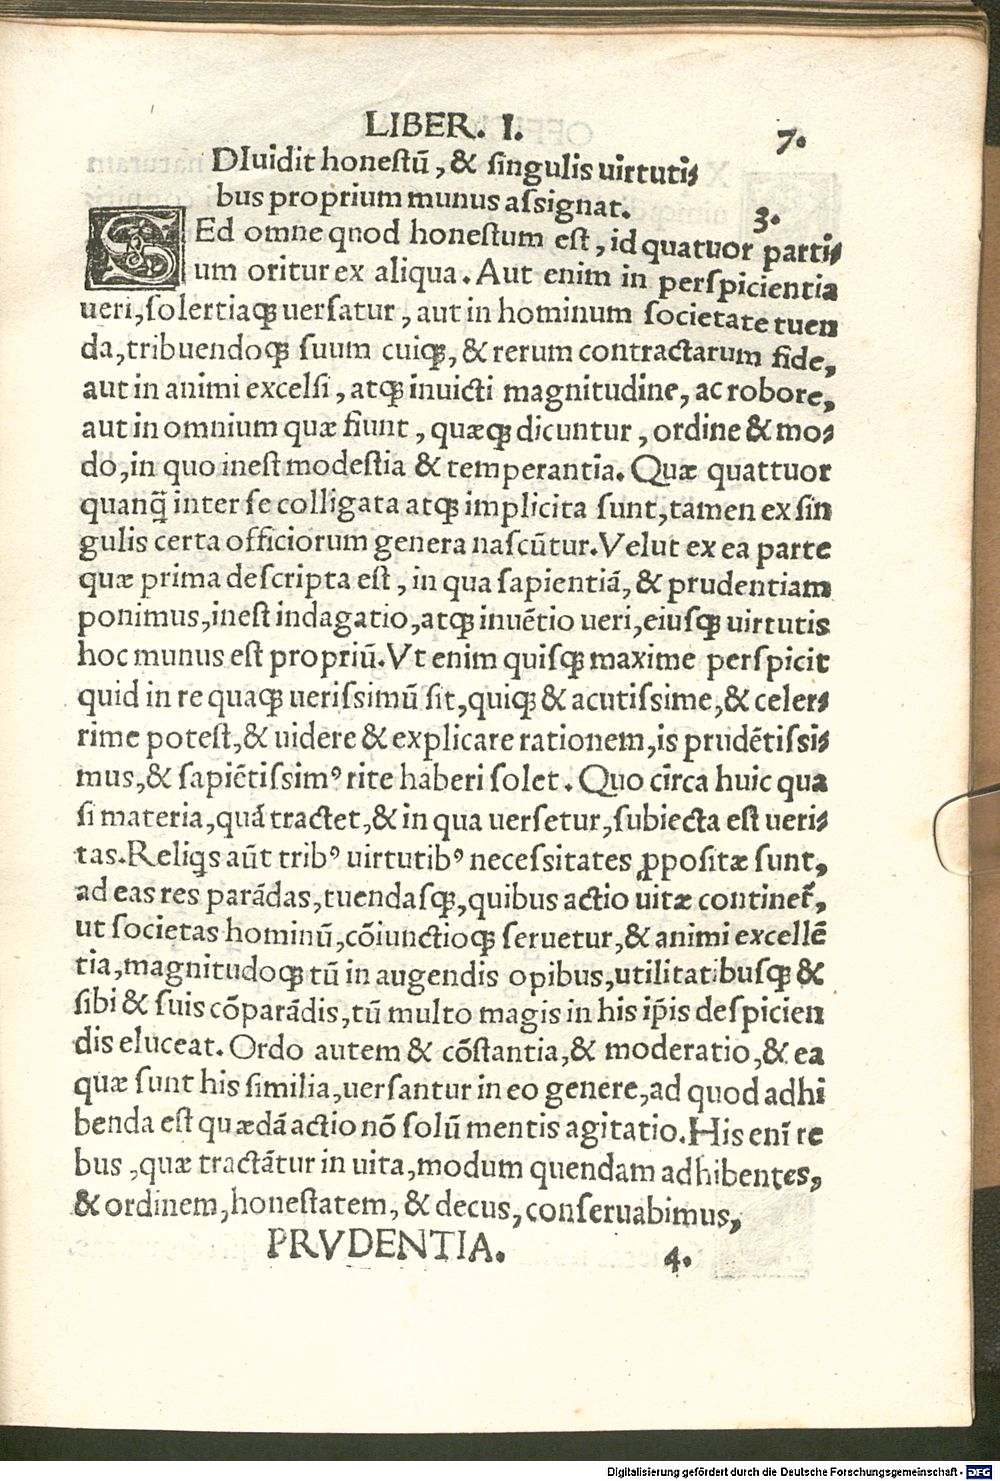 LIBER. I. 7.
DIuidit honestū, & singulis uirtuti⸗
bus proprium munus assignat. 3.
SEd omne qnod honestum est, id quatuor parti⸗
um oritur ex aliqua. Aut enim in perspicientia
ueri, solertiaqꝫ uersatur, aut in hominum societate tuen
da, tribuendoqꝫ suum cuiqꝫ, & rerum contractarum fide,
aut in animi excelsi, atqꝫ inuicti magnitudine, ac robore,
aut in omnium quæ fiunt, quæqꝫ dicuntur, ordine & mo⸗
do, in quo inest modestia & temperantia. Quæ quattuor
quanq̃ inter se colligata atqꝫ implicita sunt, tamen ex sin
gulis certa officiorum genera nascūtur. Velut ex ea parte
quæ prima descripta est, in qua sapientiā, & prudentiam
ponimus, inest indagatio, atqꝫ inuētio ueri, eiusqꝫ uirtutis
hoc munus est propriū. Vt enim quisqꝫ maxime perspicit
quid in re quaqꝫ uerissimū sit, quiqꝫ & acutissime, & celer⸗
rime potest, & uidere & explicare rationem, is prudētissi⸗
mus, & sapiētissimꝰ rite haberi solet. Quo circa huic qua
si materia, quā tractet, & in qua uersetur, subiecta est ueri⸗
tas. Reliqꝭs aūt tribꝰ uirtutibꝰ necessitates ꝓpositæ sunt,
ad eas res parādas, tuendasqꝫ, quibus actio uitæ continet̃,
ut societas hominū, cōiunctioqꝫ seruetur, & animi excellē
tia, magnitudoqꝫ tū in augendis opibus, utilitatibusqꝫ &
sibi & suis cōparādis, tū multo magis in his ip̄is despicien
dis eluceat. Ordo autem & cōstantia, & moderatio, & ea
quæ sunt his similia, uersantur in eo genere, ad quod adhi
benda est quædā actio nō solū mentis agitatio. His enī re
bus, quæ tractātur in uita, modum quendam adhibentes,
& ordinem, honestatem, & decus, conseruabimus,
PRVDENTIA. 4.
Digitalisierung gefördert durch die Deutsche Forschungsgemeinschaft - DFG